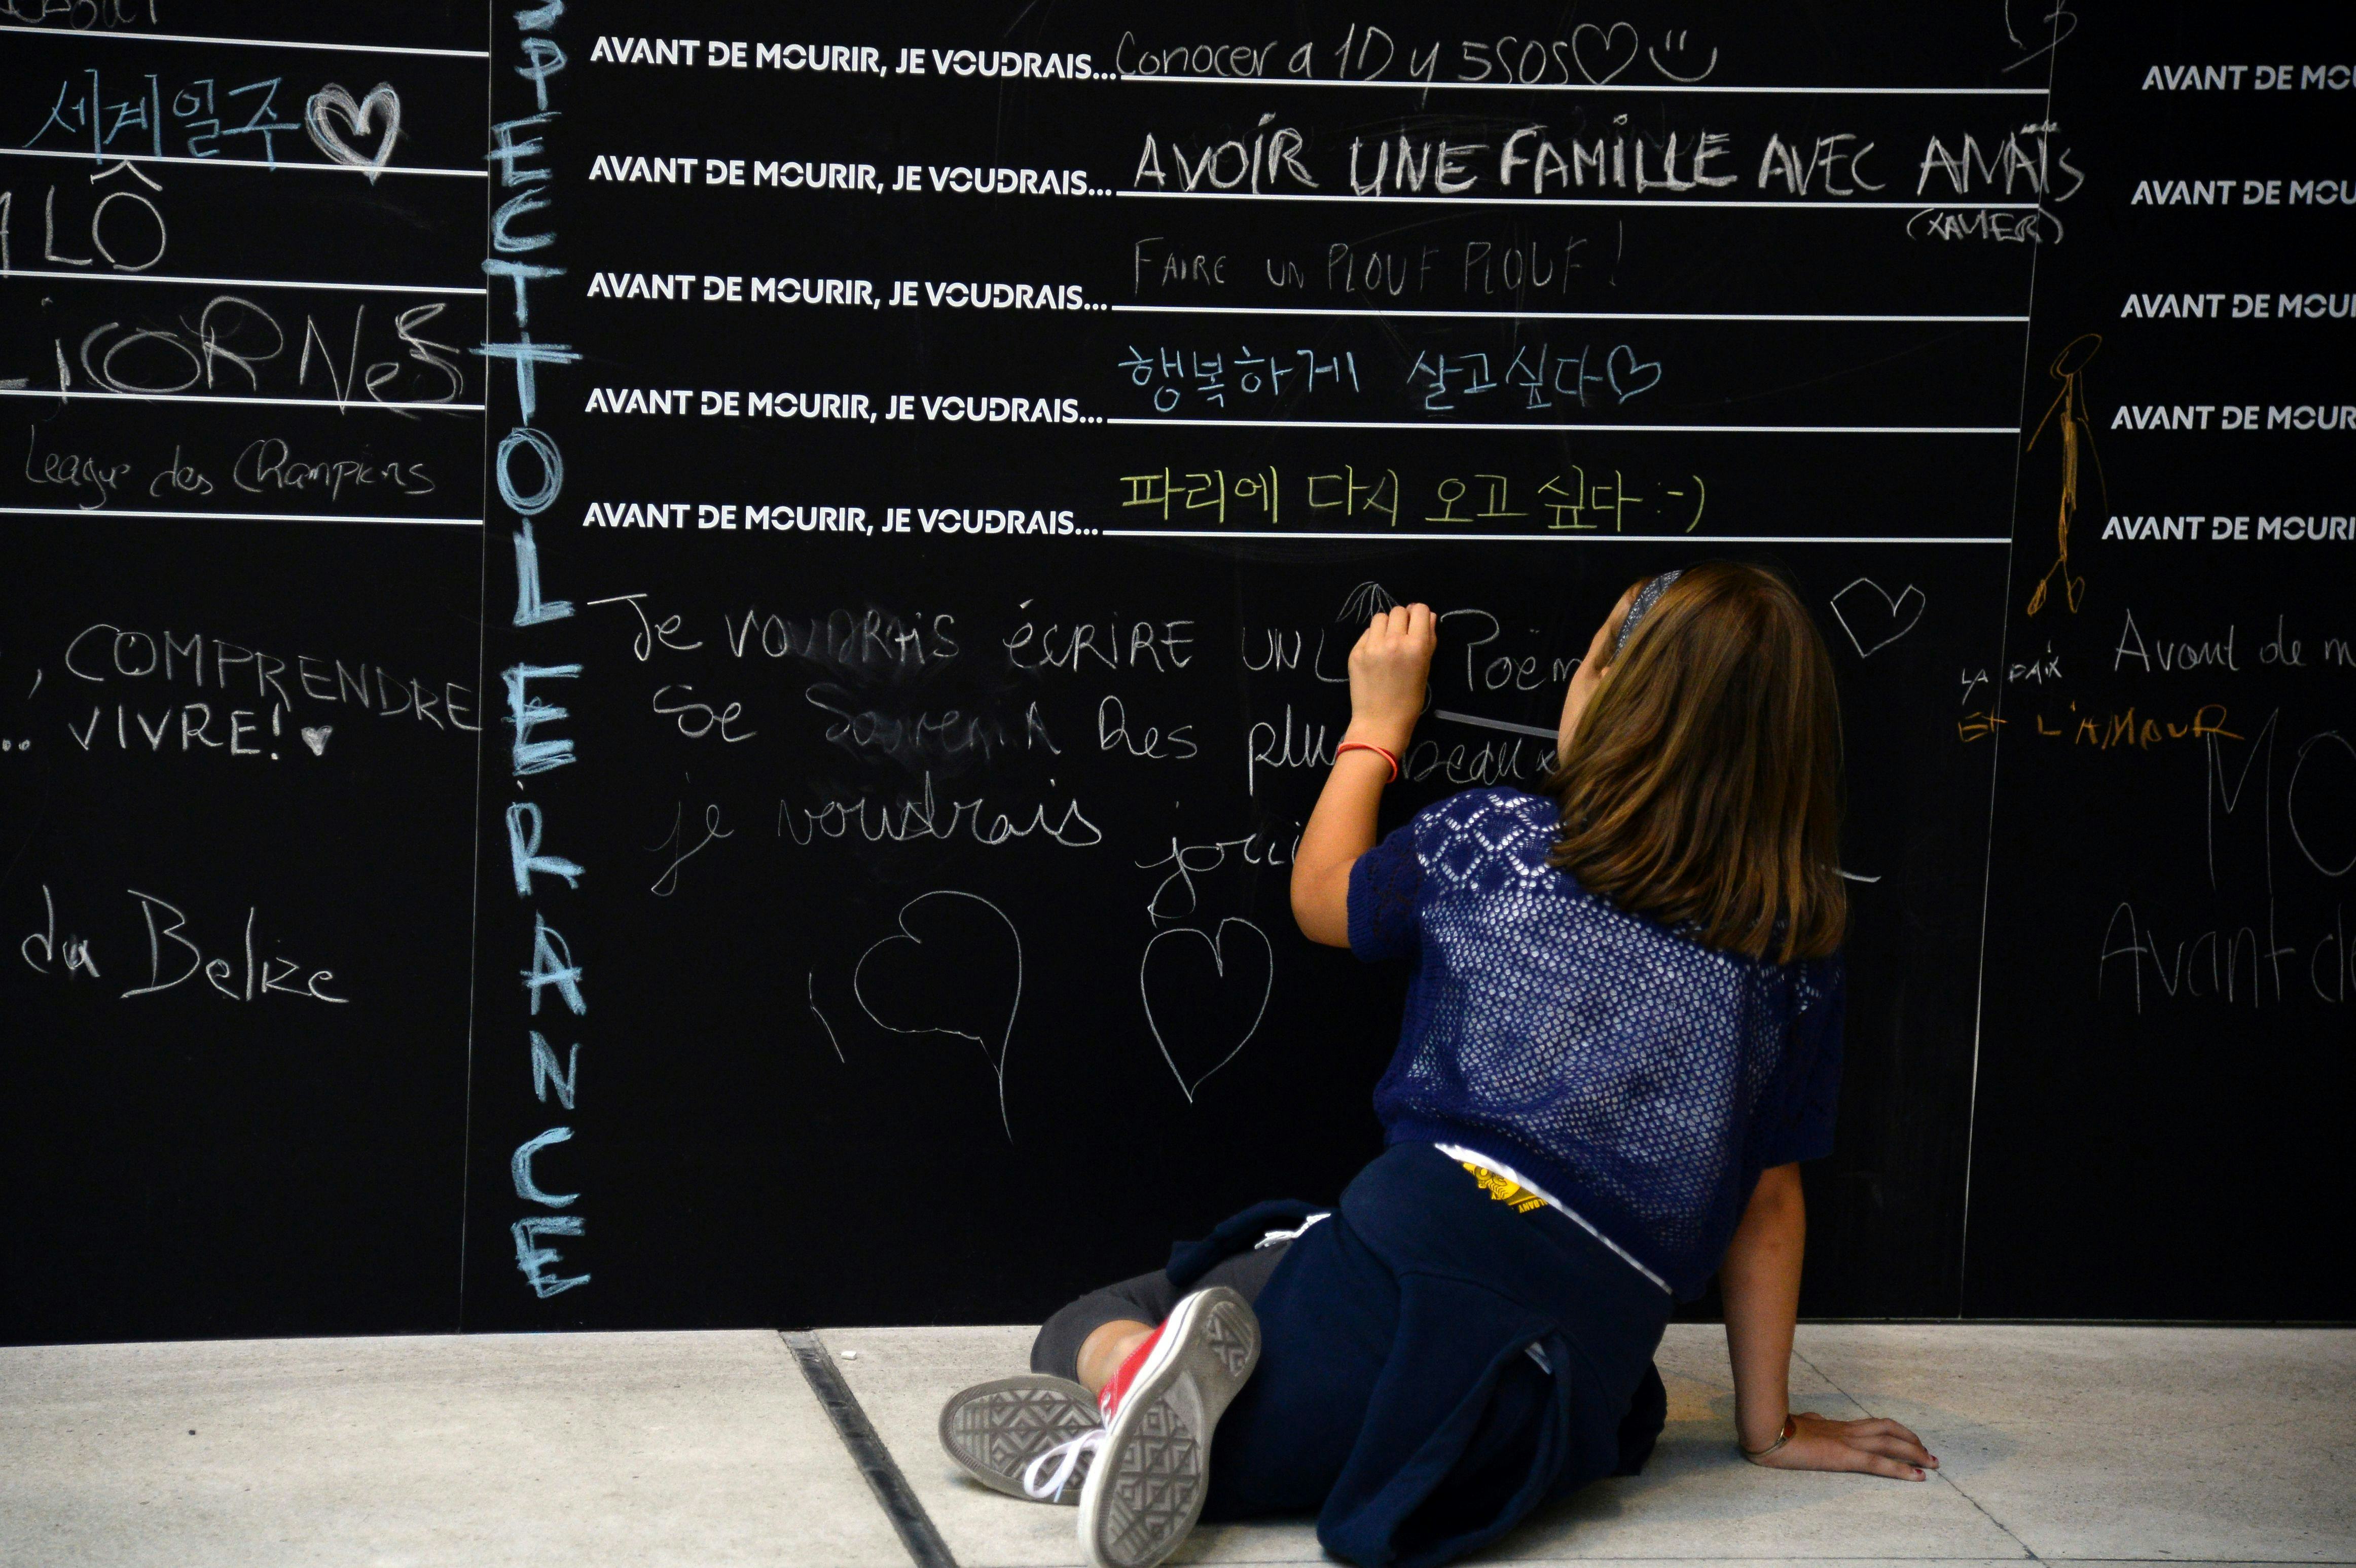 세계일주
LÔ
LiCORNeS
League des Champions
, COMPRENDRE
.. VIVRE!
du Belize
PECT TOLERANCE
AVANT DE MOURIR, JE VOUDRAIS... Conocer a 1D y 5SOS
AVANT DE MOURIR, JE VOUDRAIS... AVOIR UNE FAMILLE AVEC ANAÏS
(XAVIER)
AVANT DE MOURIR, JE VOUDRAIS... FAIRE UN PLOUF PLOUF !
AVANT DE MOURIR, JE VOUDRAIS... 행복하게 살고싶다
AVANT DE MOURIR, JE VOUDRAIS... 파리에 다시 오고 싶다 :-)
Je voudrais écrire un Poèm
Se Souvenir Des plus beaux
je voudrais
LA PAIX
ET L'AMOUR
AVANT DE MOU
AVANT DE MOU
AVANT DE MOUR
AVANT DE MOUR
AVANT DE MOURI
Avant de m
MO
Avant d